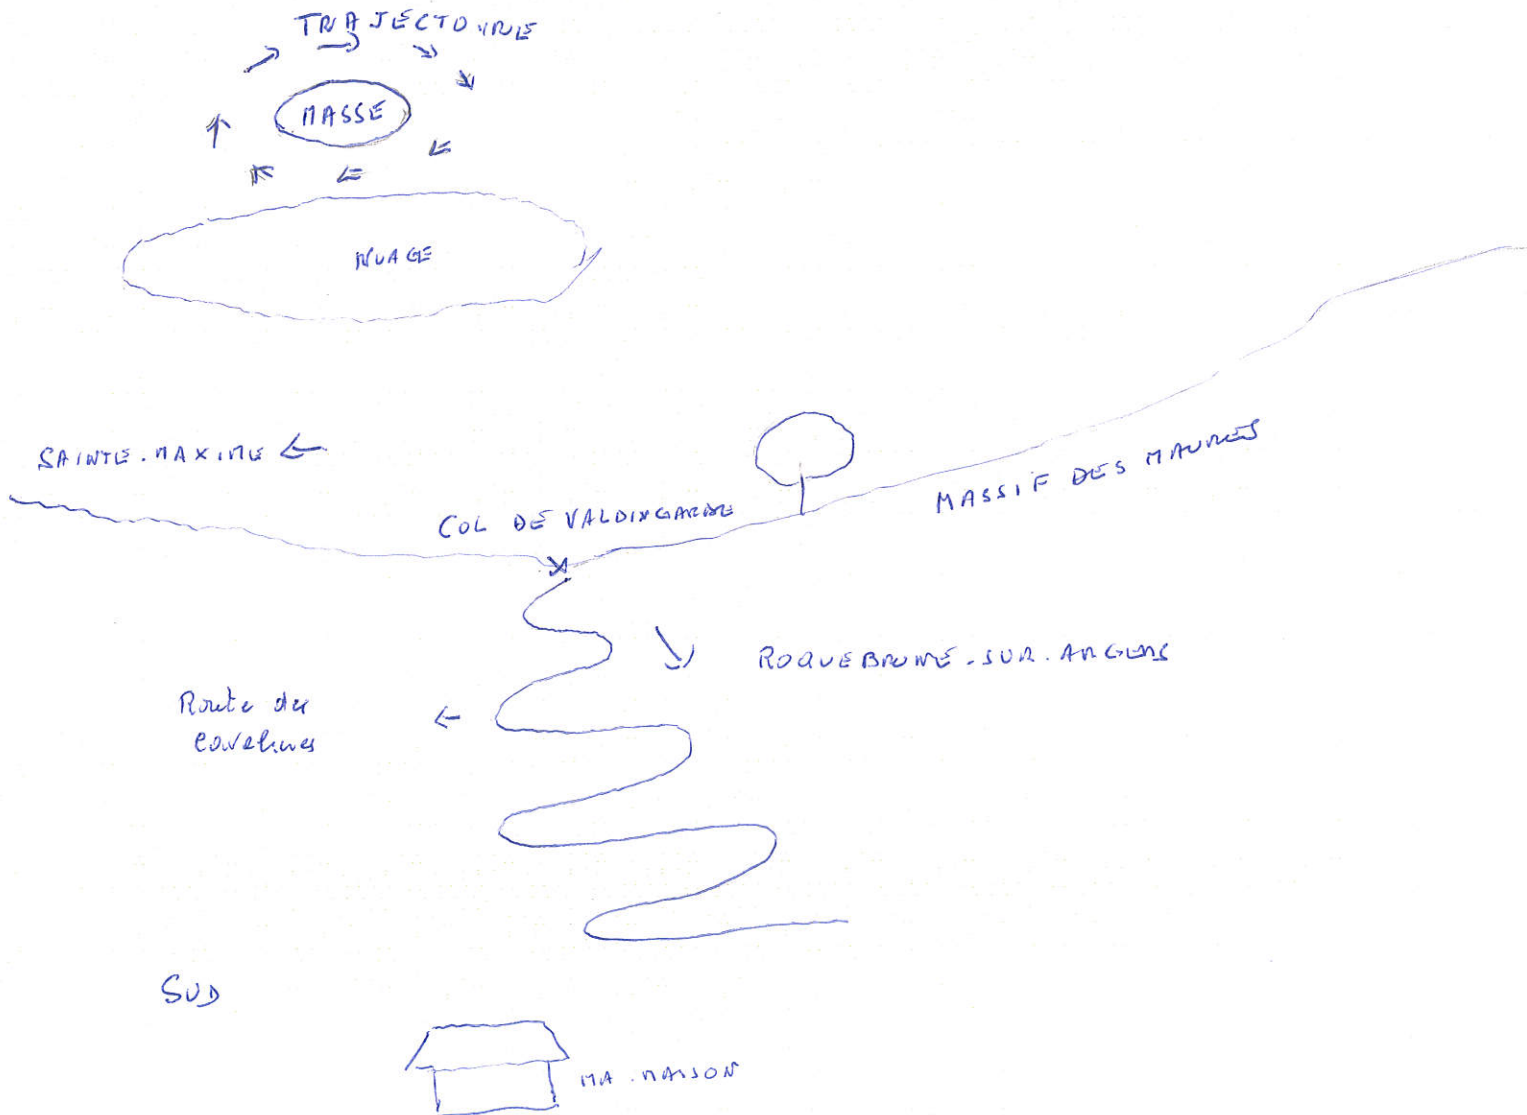 TRAJECTOIRE
MASSE
NUAGE
SAINTE.MAXIME
COL DE VALDINGARDE
MASSIF DES MAURES
ROQUEBRUNE-SUR.ARGENS
Route des
SUD
MA.MAISON